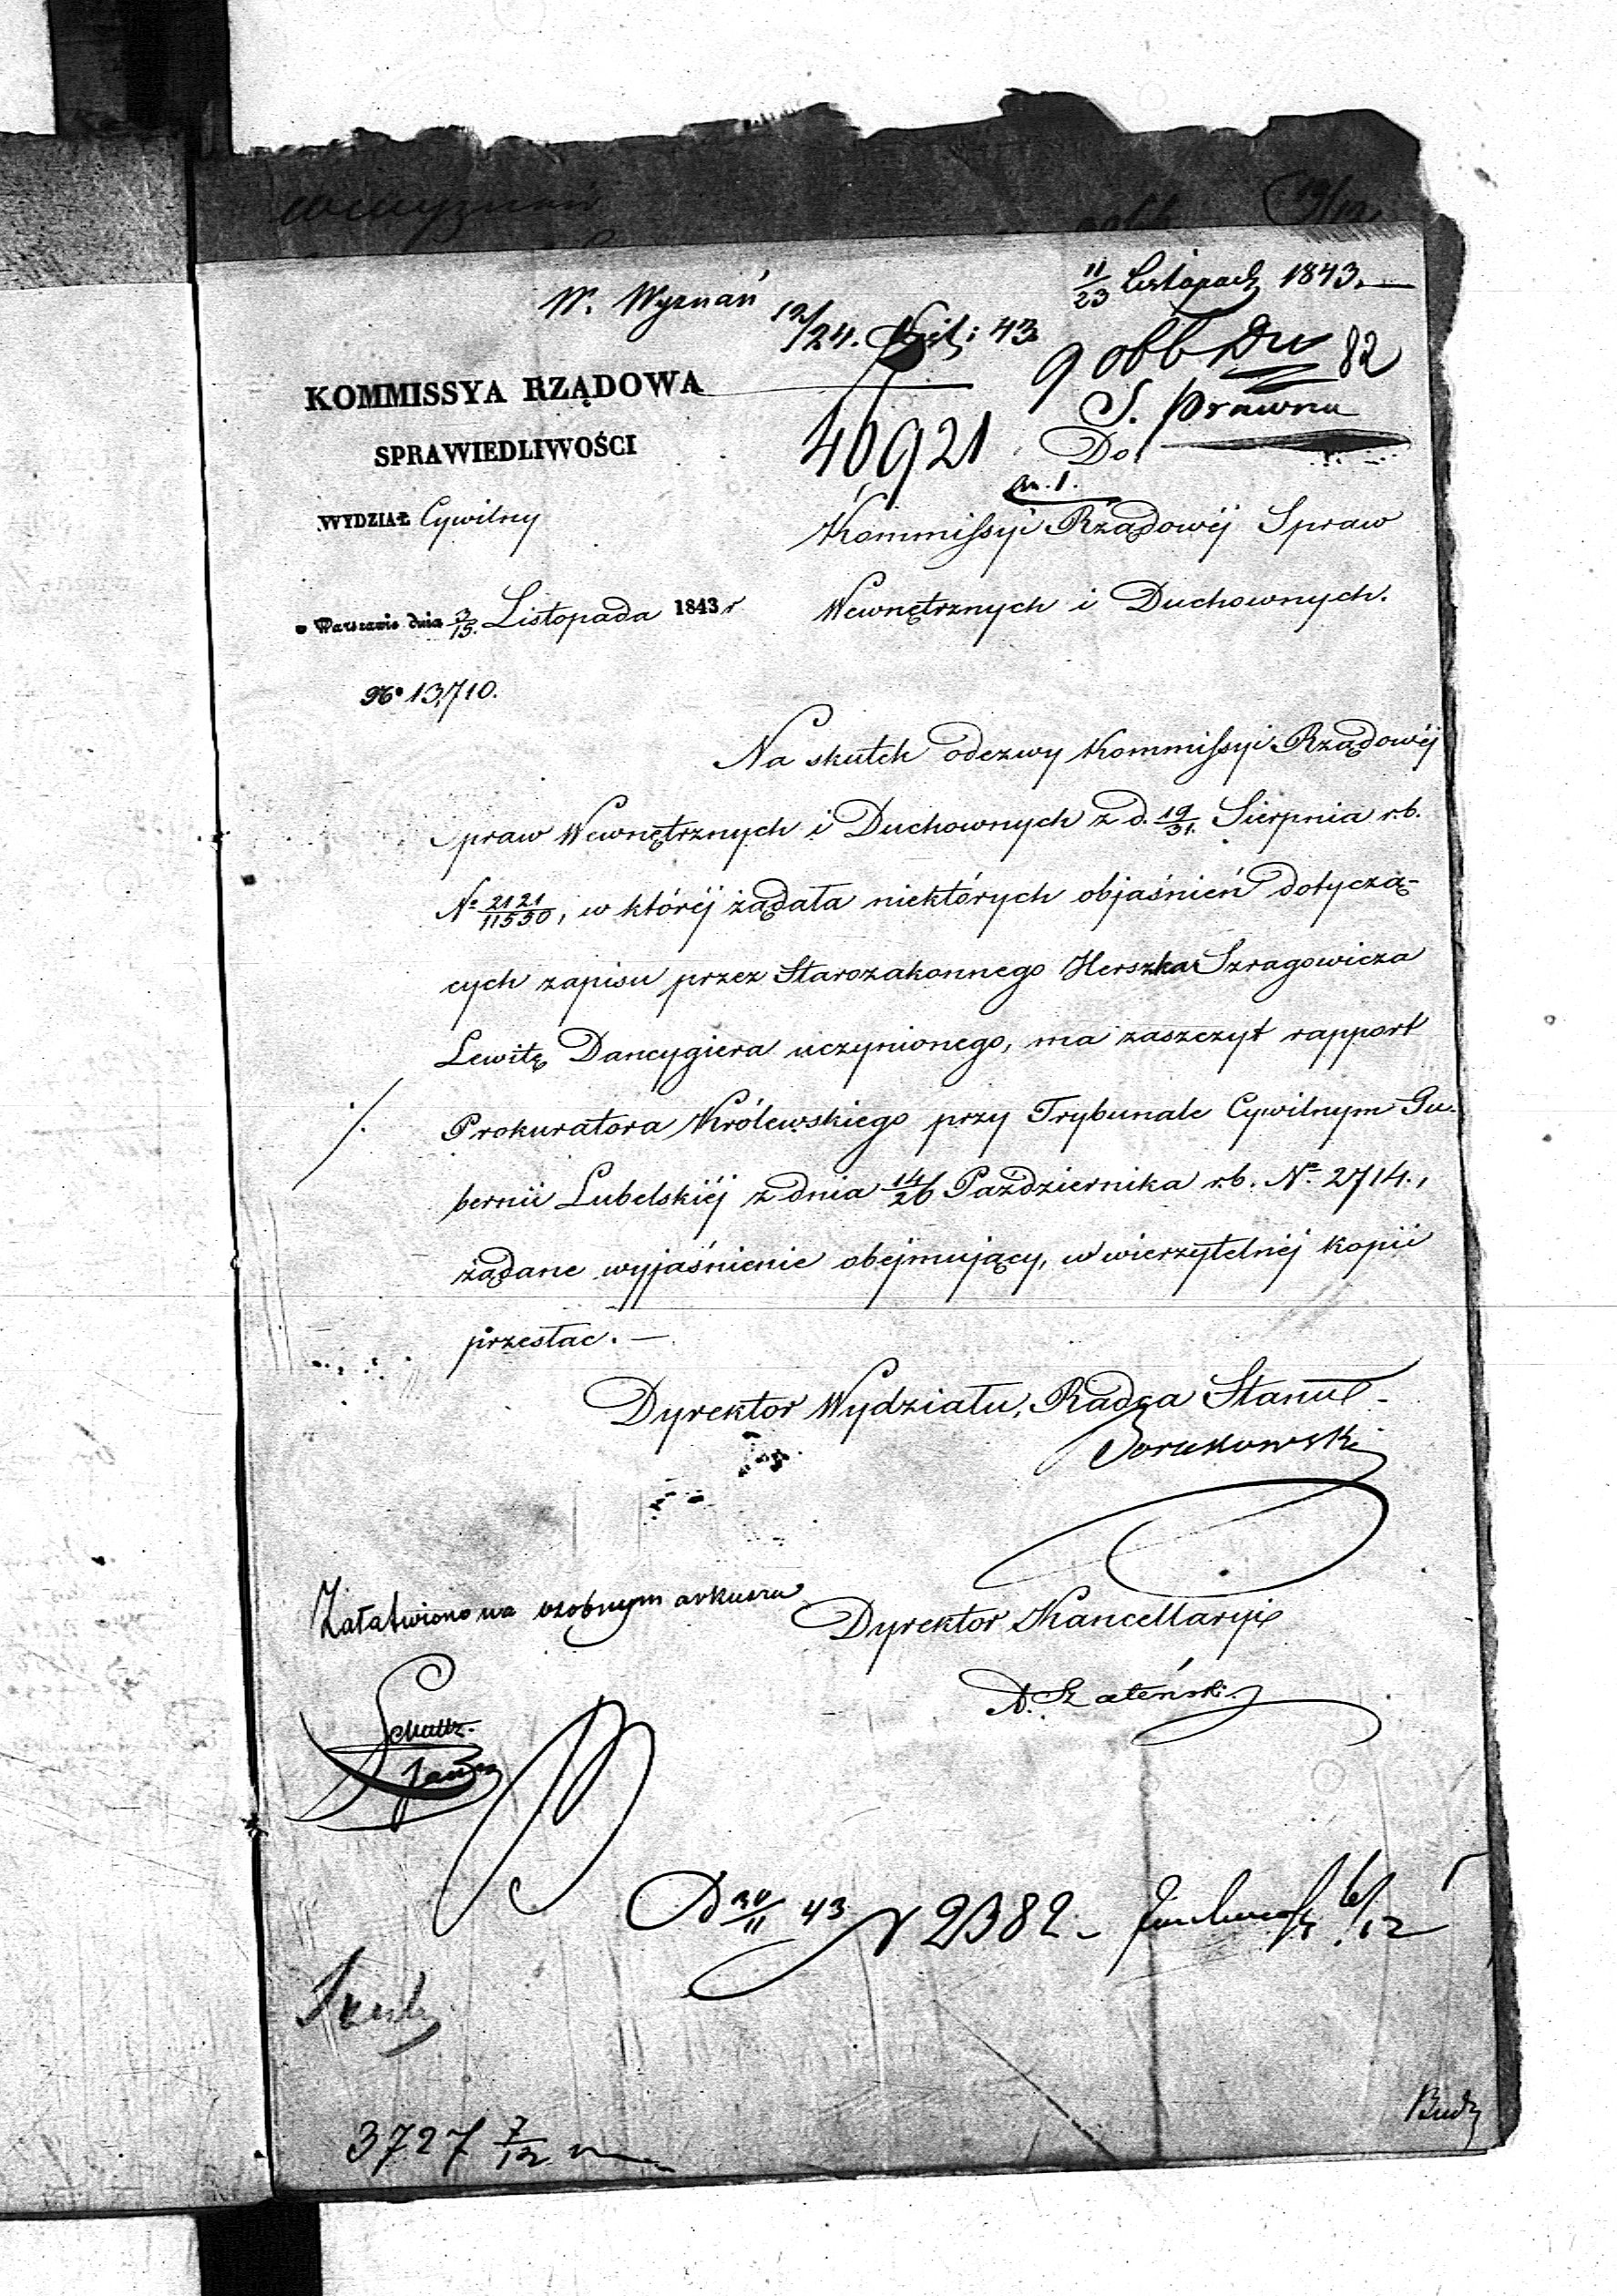 W. Wyznań
11/23 Listopada 1843.
12/24. 43
82
S. Prawna
KOMMISSYA RZĄDOWA
SPRAWIEDLIWOŚCI
40921
Do
WYDZIAŁ Cywilny
Kommissyi Rządowéj Spraw
w Warszawie dnia 3/15. Listopada 1843 r
Wewnętrznych i Duchownych.
No 13,710.
Na skutek odezwy Kommissyi Rządowéj
Spraw Wewnętrznych i Duchownych z d. 19/31. Sierpnia r.b.
No 2121/11550, w któréj żądała niektórych objaśnień dotyczą-
cych zapisu przez Starozakonnego Herszka Szragowicza
Lewitę Dancygiera uczynionego, ma zaszczyt rapport
Prokuratora Królewskiego przy Trybunale Cywilnym Gu-
bernii Lubelskiéj z dnia 14/26 Października r.b. No 2714.,
żądane wyjaśnienie obejmujący, w wierzytelnéj kopii
przesłać. —
Dyrektor Wydziału, Radca Stanu
Załatwiono na osobnym arkuszu
Dyrektor Kancellaryi
43 N 2382 6/12
3727 7/12